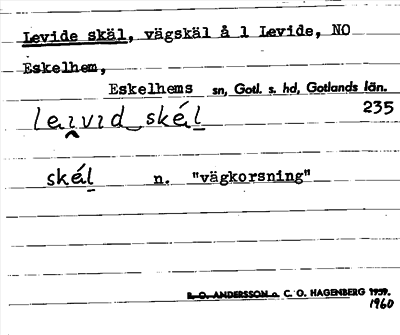 Levide skäl, vägskäl å 1 Levide, NO
Eskelhem,
Eskelhems sn, Gotl. s. hd, Gotlands län.
235
leivid skäl
skäl n. "vägkorsning"
L. O. ANDERSSON o. C. O. HAGENBERG 1959.
1960